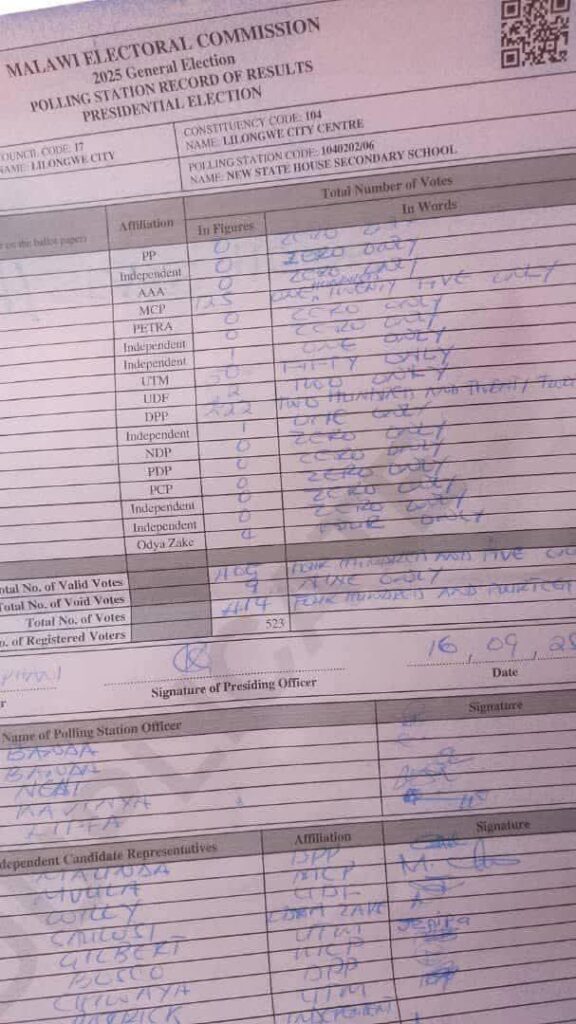 MALAWI ELECTORAL COMMISSION
2025 General Election
POLLING STATION RECORD OF RESULTS
PRESIDENTIAL ELECTION
COUNCIL CODE: 17 CONSTITUENCY CODE: 104
NAME: LILONGWE CITY NAME: LILONGWE CITY CENTRE
POLLING STATION CODE: 1040202/06
NAME: NEW STATE HOUSE SECONDARY SCHOOL
Total Number of Votes
on the ballot paper) Affiliation In Figures In Words
PP 0 ZERO
Independent 0 ZERO ONLY
AAA 0 ZERO ONLY
MCP 125 ONE HUNDRED TWENTY FIVE ONLY
PETRA 0 ZERO ONLY
Independent 0 ZERO ONLY
Independent 1 ONE ONLY
UTM 50 FIFTY ONLY
UDF 2 TWO ONLY
DPP 222 TWO HUNDRED AND TWENTY TWO
Independent 1 ONE ONLY
NDP 0 ZERO ONLY
PDP 0 ZERO ONLY
PCP 0 ZERO ONLY
Independent 0 ZERO ONLY
Independent 0 ZERO ONLY
Odya Zake 4 FOUR ONLY
Total No. of Valid Votes 405 FOUR HUNDRED AND FIVE
Total No. of Void Votes 9 NINE ONLY
Total No. of Votes 414 FOUR HUNDRED AND FOURTEEN
No. of Registered Voters 523
16, 09, 25
Signature of Presiding Officer Date
Name of Polling Station Officer Signature
BANDA
BANDA
Independent Candidate Representatives Affiliation Signature
MALUNDA DPP
MVULA MCP
WILLY UDF
ODYA ZAKE
GILBERT UTM Jenifa
BOSCO MCP
CHIWAYA DPP
PATRICK UTM
INDEPENDENT